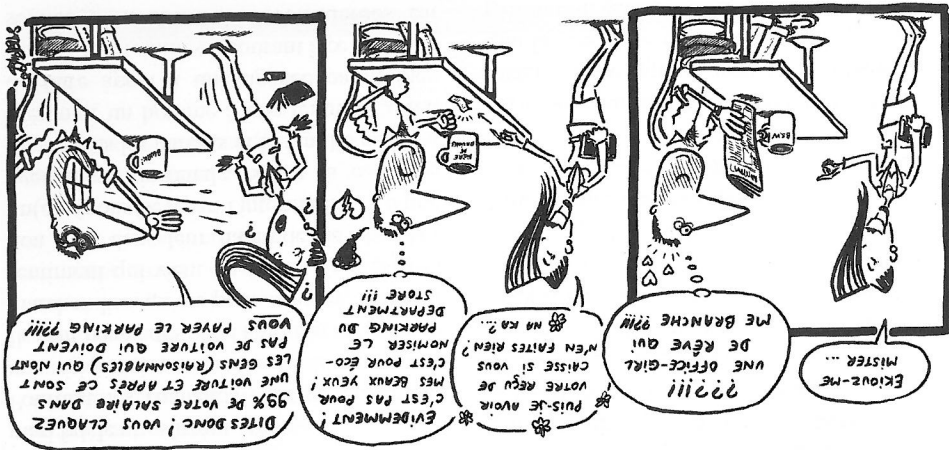 EKIQUE-ME
MISTER ...
???!!!
UNE OFFICE-GIRL
DE RÊVE QUI
ME BRANCHE ??!!!
PUIS-JE AVOIR
VOTRE REÇU DE
CAISSE SI VOUS
N'EN FAITES RIEN?
NA KA...?
ÉVIDEMMENT!
C'EST PAS POUR
MES BEAUX YEUX!
C'EST POUR ÉCO-
NOMISER LE
PARKING DU
DEPARTMENT
STORE !!!
DITES DONC! VOUS CLAQUEZ
99% DE VOTRE SALAIRE DANS
UNE VOITURE ET APRÈS CE SONT
LES GENS (RAISONNABLES) QUI N'ONT
PAS DE VOITURE QUI DOIVENT
VOUS PAYER LE PARKING ??!!!